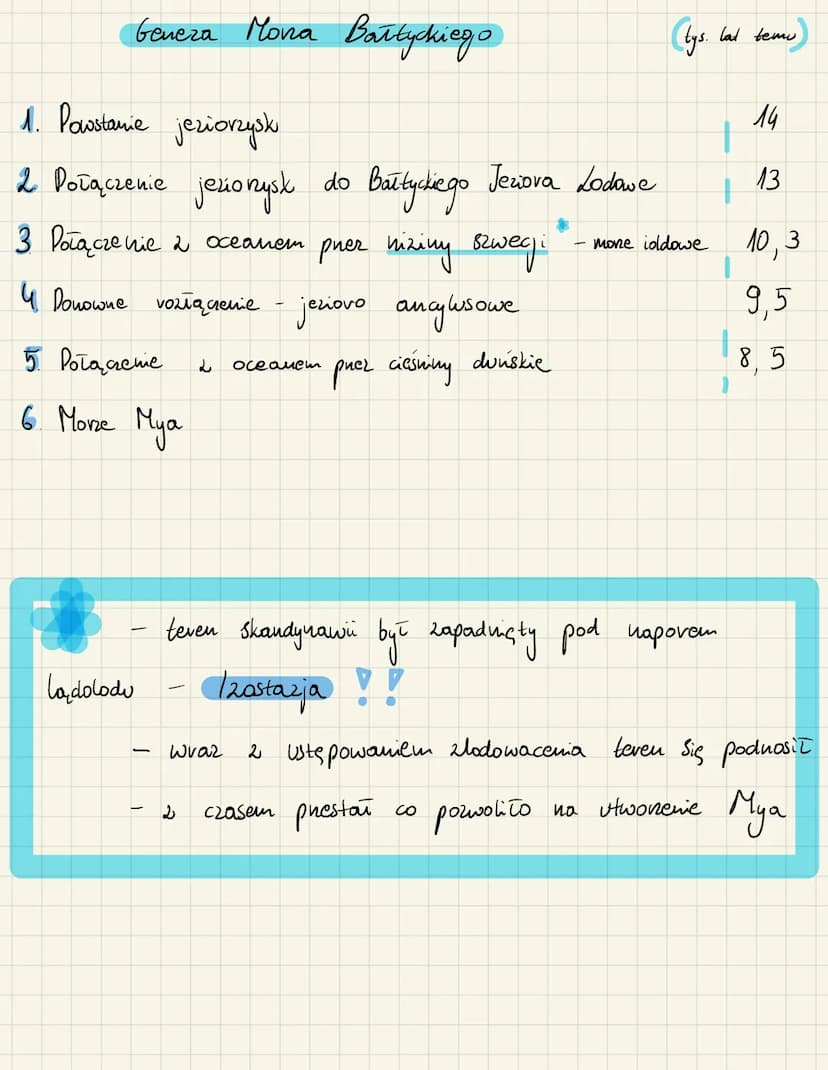 Geneza Morza Bałtyckiego (tys. lat temu)
1. Powstanie jeziorzysk 14
2 Połączenie jeziorzysk do Bałtyckiego Jeziora Lodowe 13
3 Połączenie z oceanem przez niziny szwecji * - morze ioldowe 10,3
4 Ponowne rozłączenie - jezioro ancylusowe 9,5
5. Połączenie z oceanem przez cieśniny duńskie 8,5
6. Morze Mya
- teren skandynawii był zapadnięty pod naporem
lądolodu - Izostazja !!
- wraz z ustępowaniem zlodowacenia teren się podnosił
- z czasem przestał co pozwoliło na utworzenie Mya